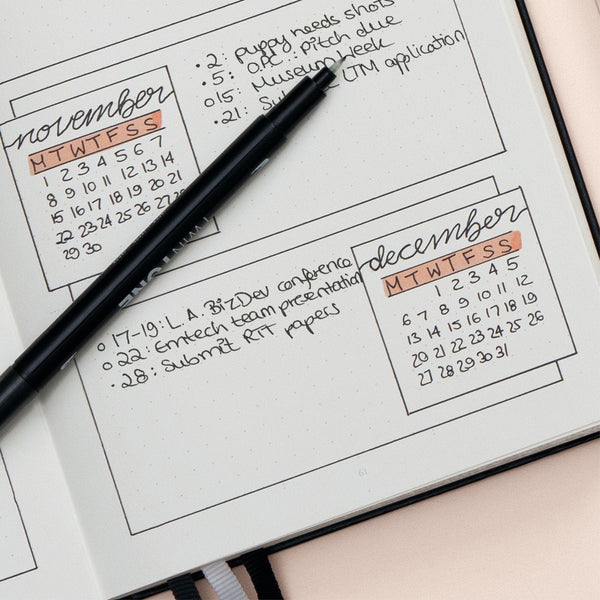 • 2: puppy needs shots
• 5: O.P.C.: pitch due
o 15: Museum Week
• 21: UTM application
november
M T W T F S S
1 2 3 4 5 6 7
8 9 10 11 12 13 14
15 16 17 18 19 20 21
22 23 24 25 26 27 28
29 30
december
M T W T F S S
1 2 3 4 5
6 7 8 9 10 11 12
13 14 15 16 17 18 19
20 21 22 23 24 25 26
27 28 29 30 31
o 17-19: L.A. BizDev conference
o 22: Emtech team presentation
• 28: Submit RTT papers
TWIN TONE
61